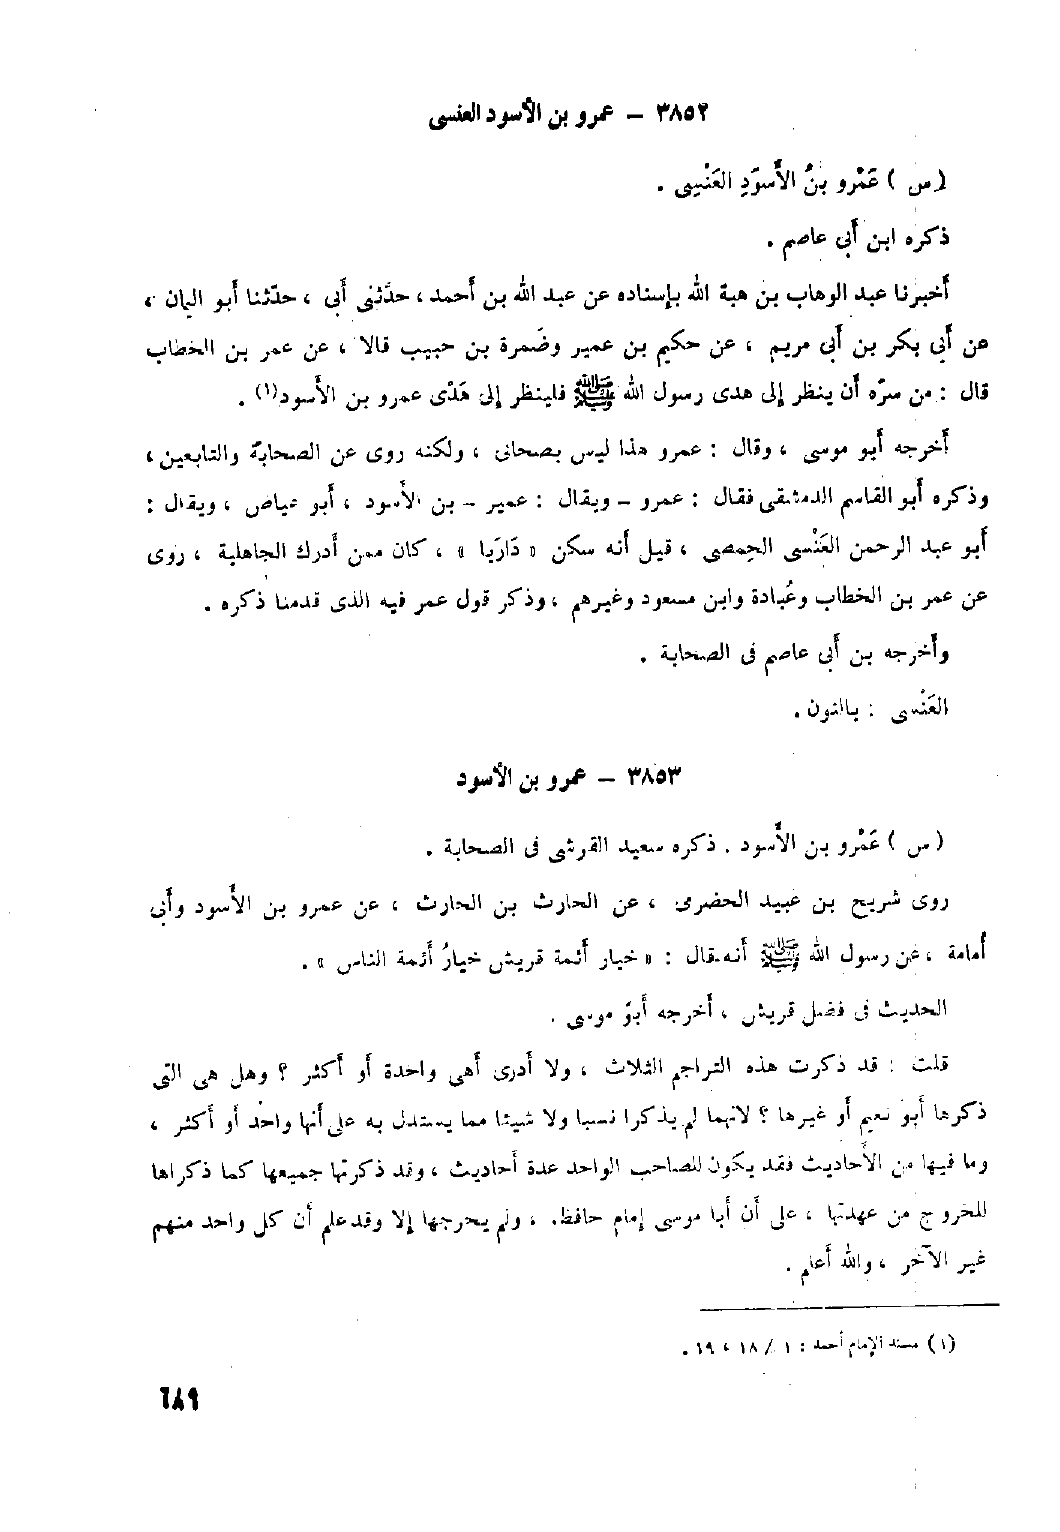 ٣٨٥٢ – عمرو بن الأسود العنسى
( س ) عَمْرو بنُ الأَسوَدِ العَنْسِى .
ذكره ابن أَبى عاصم .
أَخبرنا عبد الوهاب بن هبة الله بإسناده عن عبد الله بن أَحمد ، حدَّثنى أَبى ، حدّثنا أَبو اليمان ،
عن أَبى بكر بن أَبى مريم ، عن حكيم بن عمير وضَمرة بن حبيب قالا ، عن عمر بن الخطاب
قال : من سرّه أَن ينظر إلى هدى رسول الله ﷺ فلينظر إلى هَدْى عمرو بن الأَسود(١) .
أَخرجه أَبو موسى ، وقال : عمرو هذا ليس بصحابى ، ولكنه روى عن الصحابة والتابعين ،
وذكره أَبو القاسم الدمشقى فقال : عمرو – ويقال : عمير – بن الأَسود ، أَبو عياض ، ويقال :
أَبو عبد الرحمن العَنْسى الحِمصى ، قيل أَنه سكن « دَارَيا » ، كان ممن أَدرك الجاهلية ، روى
عن عمر بن الخطاب وعُبادة وابن مسعود وغيرهم ، وذكر قول عمر فيه الذى قدمنا ذكره .
وأَخرجه بن أَبى عاصم فى الصحابة .
العَنْسى : بالنون .
٣٨٥٣ – عمرو بن الأسود
( س ) عَمْرو بن الأَسود . ذكره سعيد القرشى فى الصحابة .
روى شريح بن عبيد الحضرمى ، عن الحارث بن الحارث ، عن عمرو بن الأَسود وأَبى
أُمامة ، عن رسول الله ﷺ أَنه قال : « خيار أَئمة قريش خيارُ أَئمة الناس » .
الحديث فى فضل قريش ، أَخرجه أَبو موسى .
قلت : قد ذكرت هذه التراجم الثلاث ، ولا أَدرى أَهى واحدة أَو أَكثر ؟ وهل هى التى
ذكرها أَبو نعيم أَو غيرها ؟ لانهما لم يذكرا نسبا ولا شيئا مما يستدل به على أَنها واحد أَو أَكثر ،
وما فيها من الأَحاديث فقد يكون للصاحب الواحد عدة أَحاديث ، وقد ذكرتها جميعها كما ذكراها
للخروج من عهدتها ، على أَن أَبا موسى إمام حافظ ، ولم يخرجها إلا وقد علم أَن كل واحد منهم
غير الآخر ، والله أَعلم .
(١) مسند الإمام أحمد : ١ / ١٨ ، ١٩ .
٦٨٩